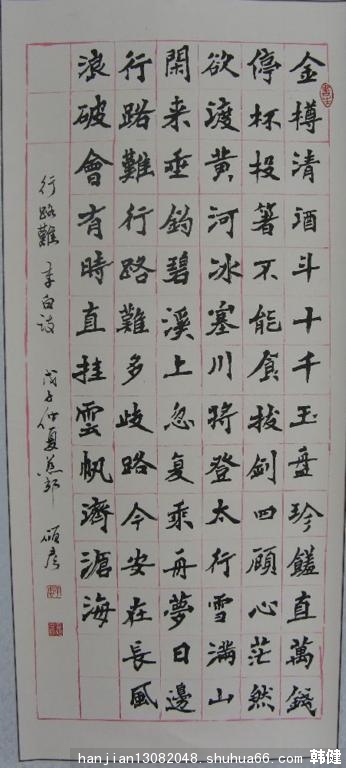 金樽清酒斗十千玉盘珍饈直萬錢
停杯投箸不能食拔劍四顧心茫然
欲渡黄河冰塞川將登太行雪滿山
閑来垂釣碧溪上忽复乘舟夢日邊
行路難行路難多歧路今安在長風
浪破會有時直挂雲帆濟滄海
行路難 李白詩 戊子仲夏
hanjian13082048.shuhua66.com 韩健